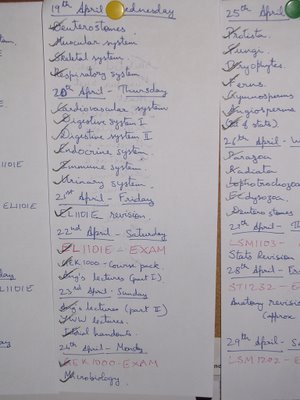 EL1101E
19th April - Wednesday
Deuterostomes.
Muscular system
Skeletal system
Respiratory system
20th April - Thursday
Cardiovascular system
Digestive system I
Digestive system II
Endocrine system
Immune system
Urinary system.
21st April - Friday
EL1101E revision.
22nd April - Saturday
EL1101E - EXAM
GEK1000 - Course pack.
(part I)
23rd April - Sunday
(part II)
lectures.
Tutorial handouts.
24th April - Monday
GEK1000 - EXAM
Microbiology.
25th April
Protista
Fungi
Bryophytes
Ferns
Gymnosperms
Angiosperms
(QE & stats)
26th April - W
Parazoa
Radiata
Lophotrochozoa
Ecdysozoa
Deuterostomes
27th April - Th
LSM1103-
Stats revision
28th April - Fr
ST1232 - E
Anatomy revision
(approx
29th April - S
LSM1202 - E